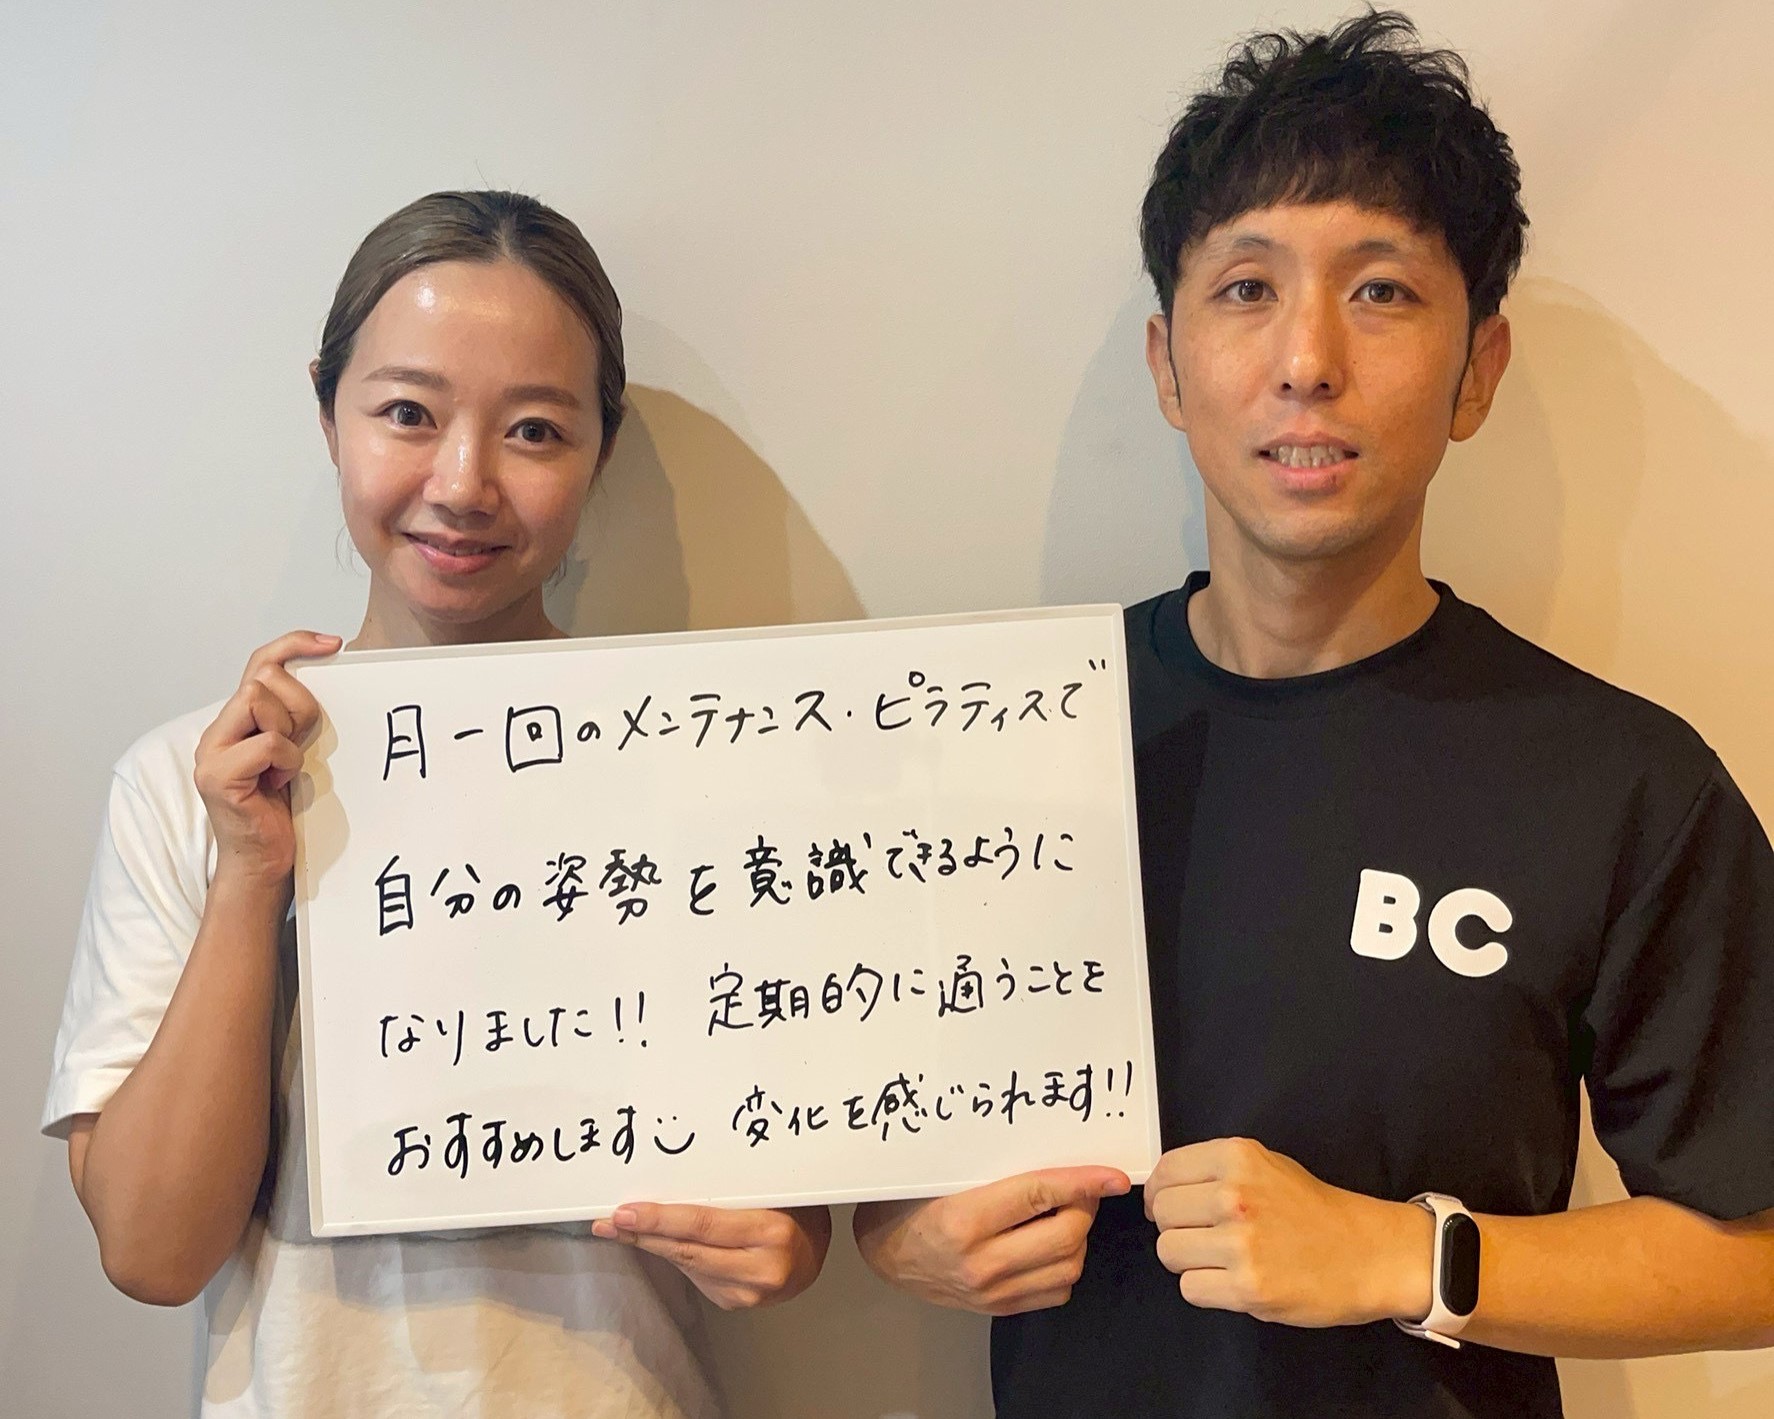 月一回のメンテナンス・ピラティスで
自分の姿勢を意識できるように
なりました!! 定期的に通うことを
おすすめします 変化を感じられます!!
BC